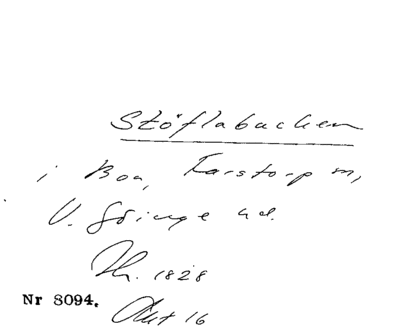 Stöflabacken
i Boa, Farstorp sn,
V. Göinge hd.
Th. 1828
Akt 16
Nr 8094.